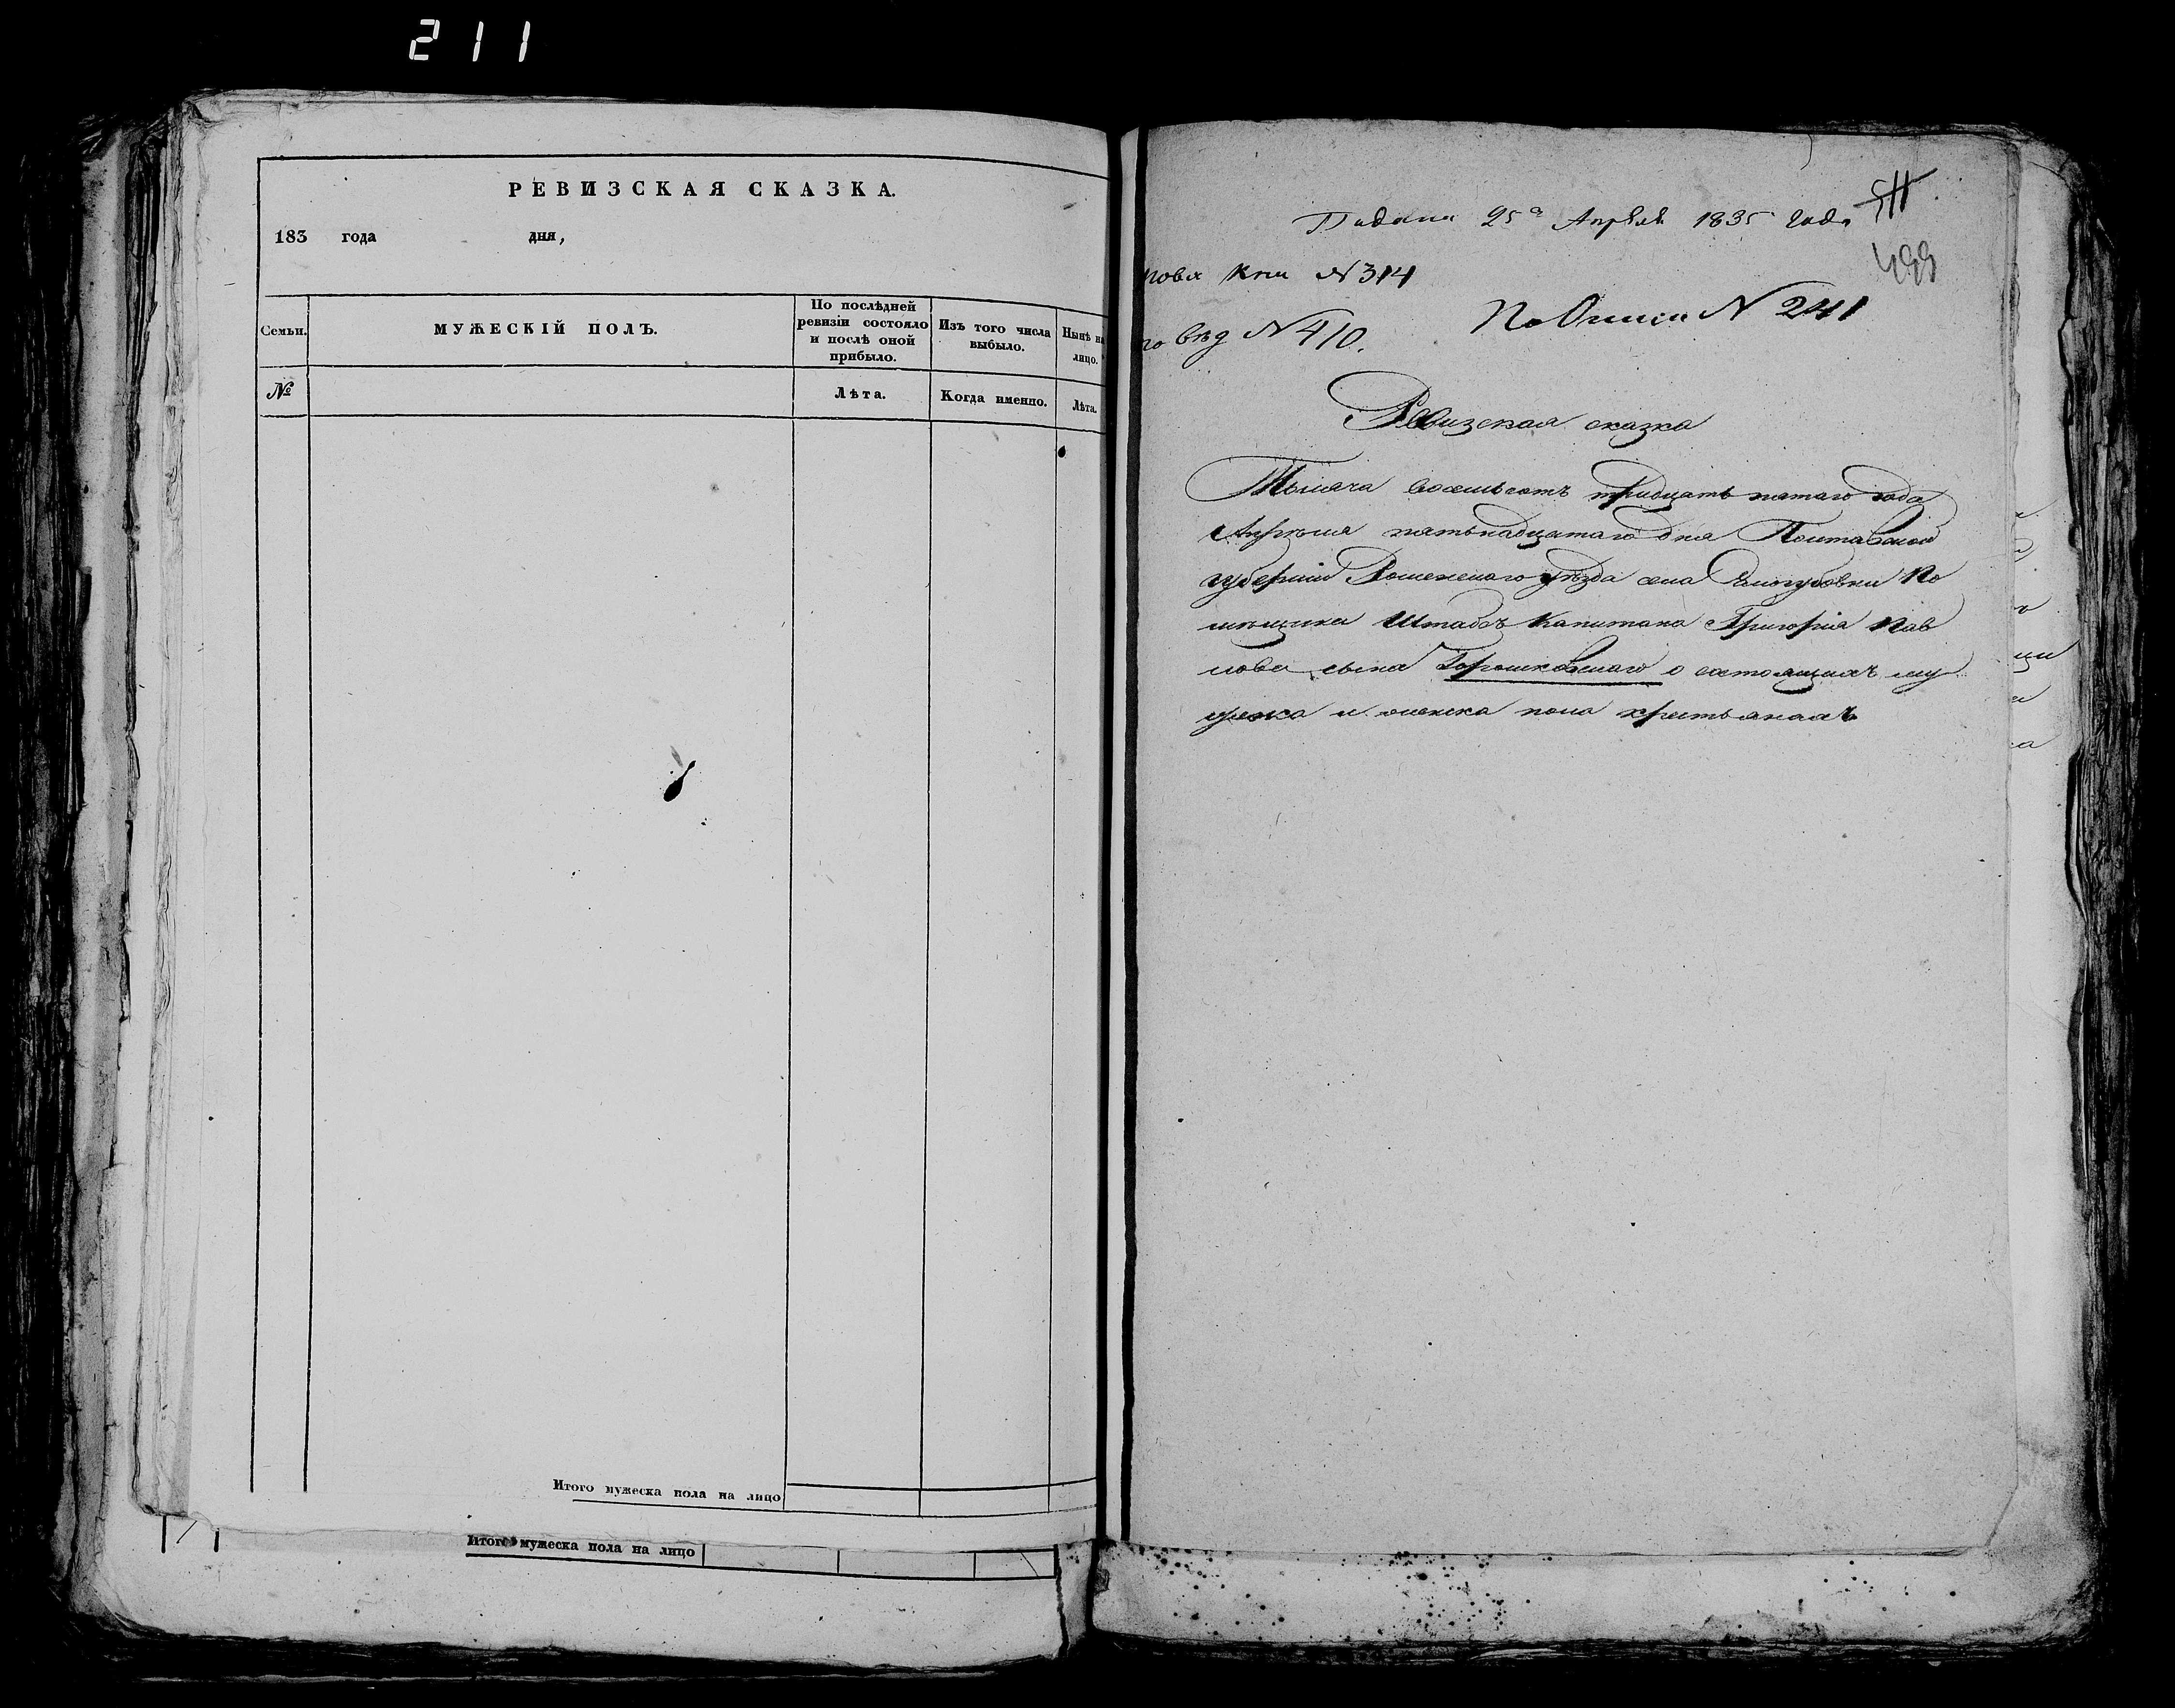 211
РЕВИЗСКАЯ СКАЗКА.
183 года дня,
Семьи.
МУЖЕСКІЙ ПОЛЪ.
По послѣдней ревизіи состояло и послѣ оной прибыло.
Изъ того числа выбыло.
Нынѣ на лицо.
№
Лѣта.
Когда именно.
Лѣта.
Итого мужеска пола на лицо
Итого мужеска пола на лицо
Подана 25а Апреля 1835 года
511
499
Кни №314
По Описи № 241
вѣд №410.
Ревизская сказка
Тысяча восемьсотъ тридцать пятаго года
Апрѣля пятьнадцатаго дня Полтавской
губерніи Роменскаго уѣзда села По
мѣщика Штабсъ Капитана Григорія Пав
лова сына Горошковскаго о состоящихъ му
жеска и женска пола крестьянахъ